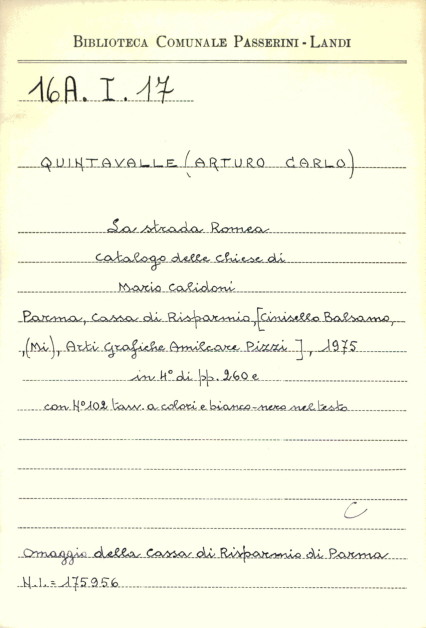 BIBLIOTECA COMUNALE PASSERINI - LANDI
16A. I. 17
QUINTAVALLE (ARTURO CARLO)
La strada Romea
Catalogo delle Chiese di
Mario Calidoni
Parma, Cassa di Risparmio, [Cinisello Balsamo,
,(Mi), Arti Grafiche Amilcare Pizzi], 1975
in 4° di pp. 260 e
con N° 102 tavv. a colori e bianco-nero nel testo
C
Omaggio della Cassa di Risparmio di Parma
N.I. = 175956